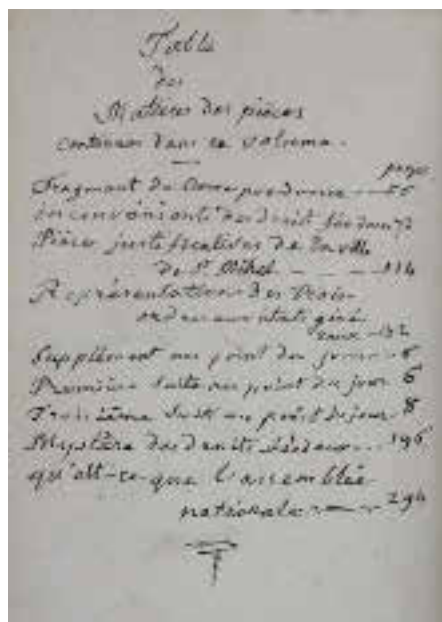 Table
des
Matieres des pièces
contenues dans ce volume.
pages
Fragment de Correspondance --- 55
inconvénients des droits féodaux 72
Pièces justificatives de la ville
de St. Mihel - - - - 114
Représentation des trois
ordres aux états géné
raux - 132
Supplément au point du jour - 6
Première suite au point du jour 6
Troisième suite au point du jour 8
Mystère des droits féodaux --- 196
qu'est-ce que l'assemblée
nationale --- 294